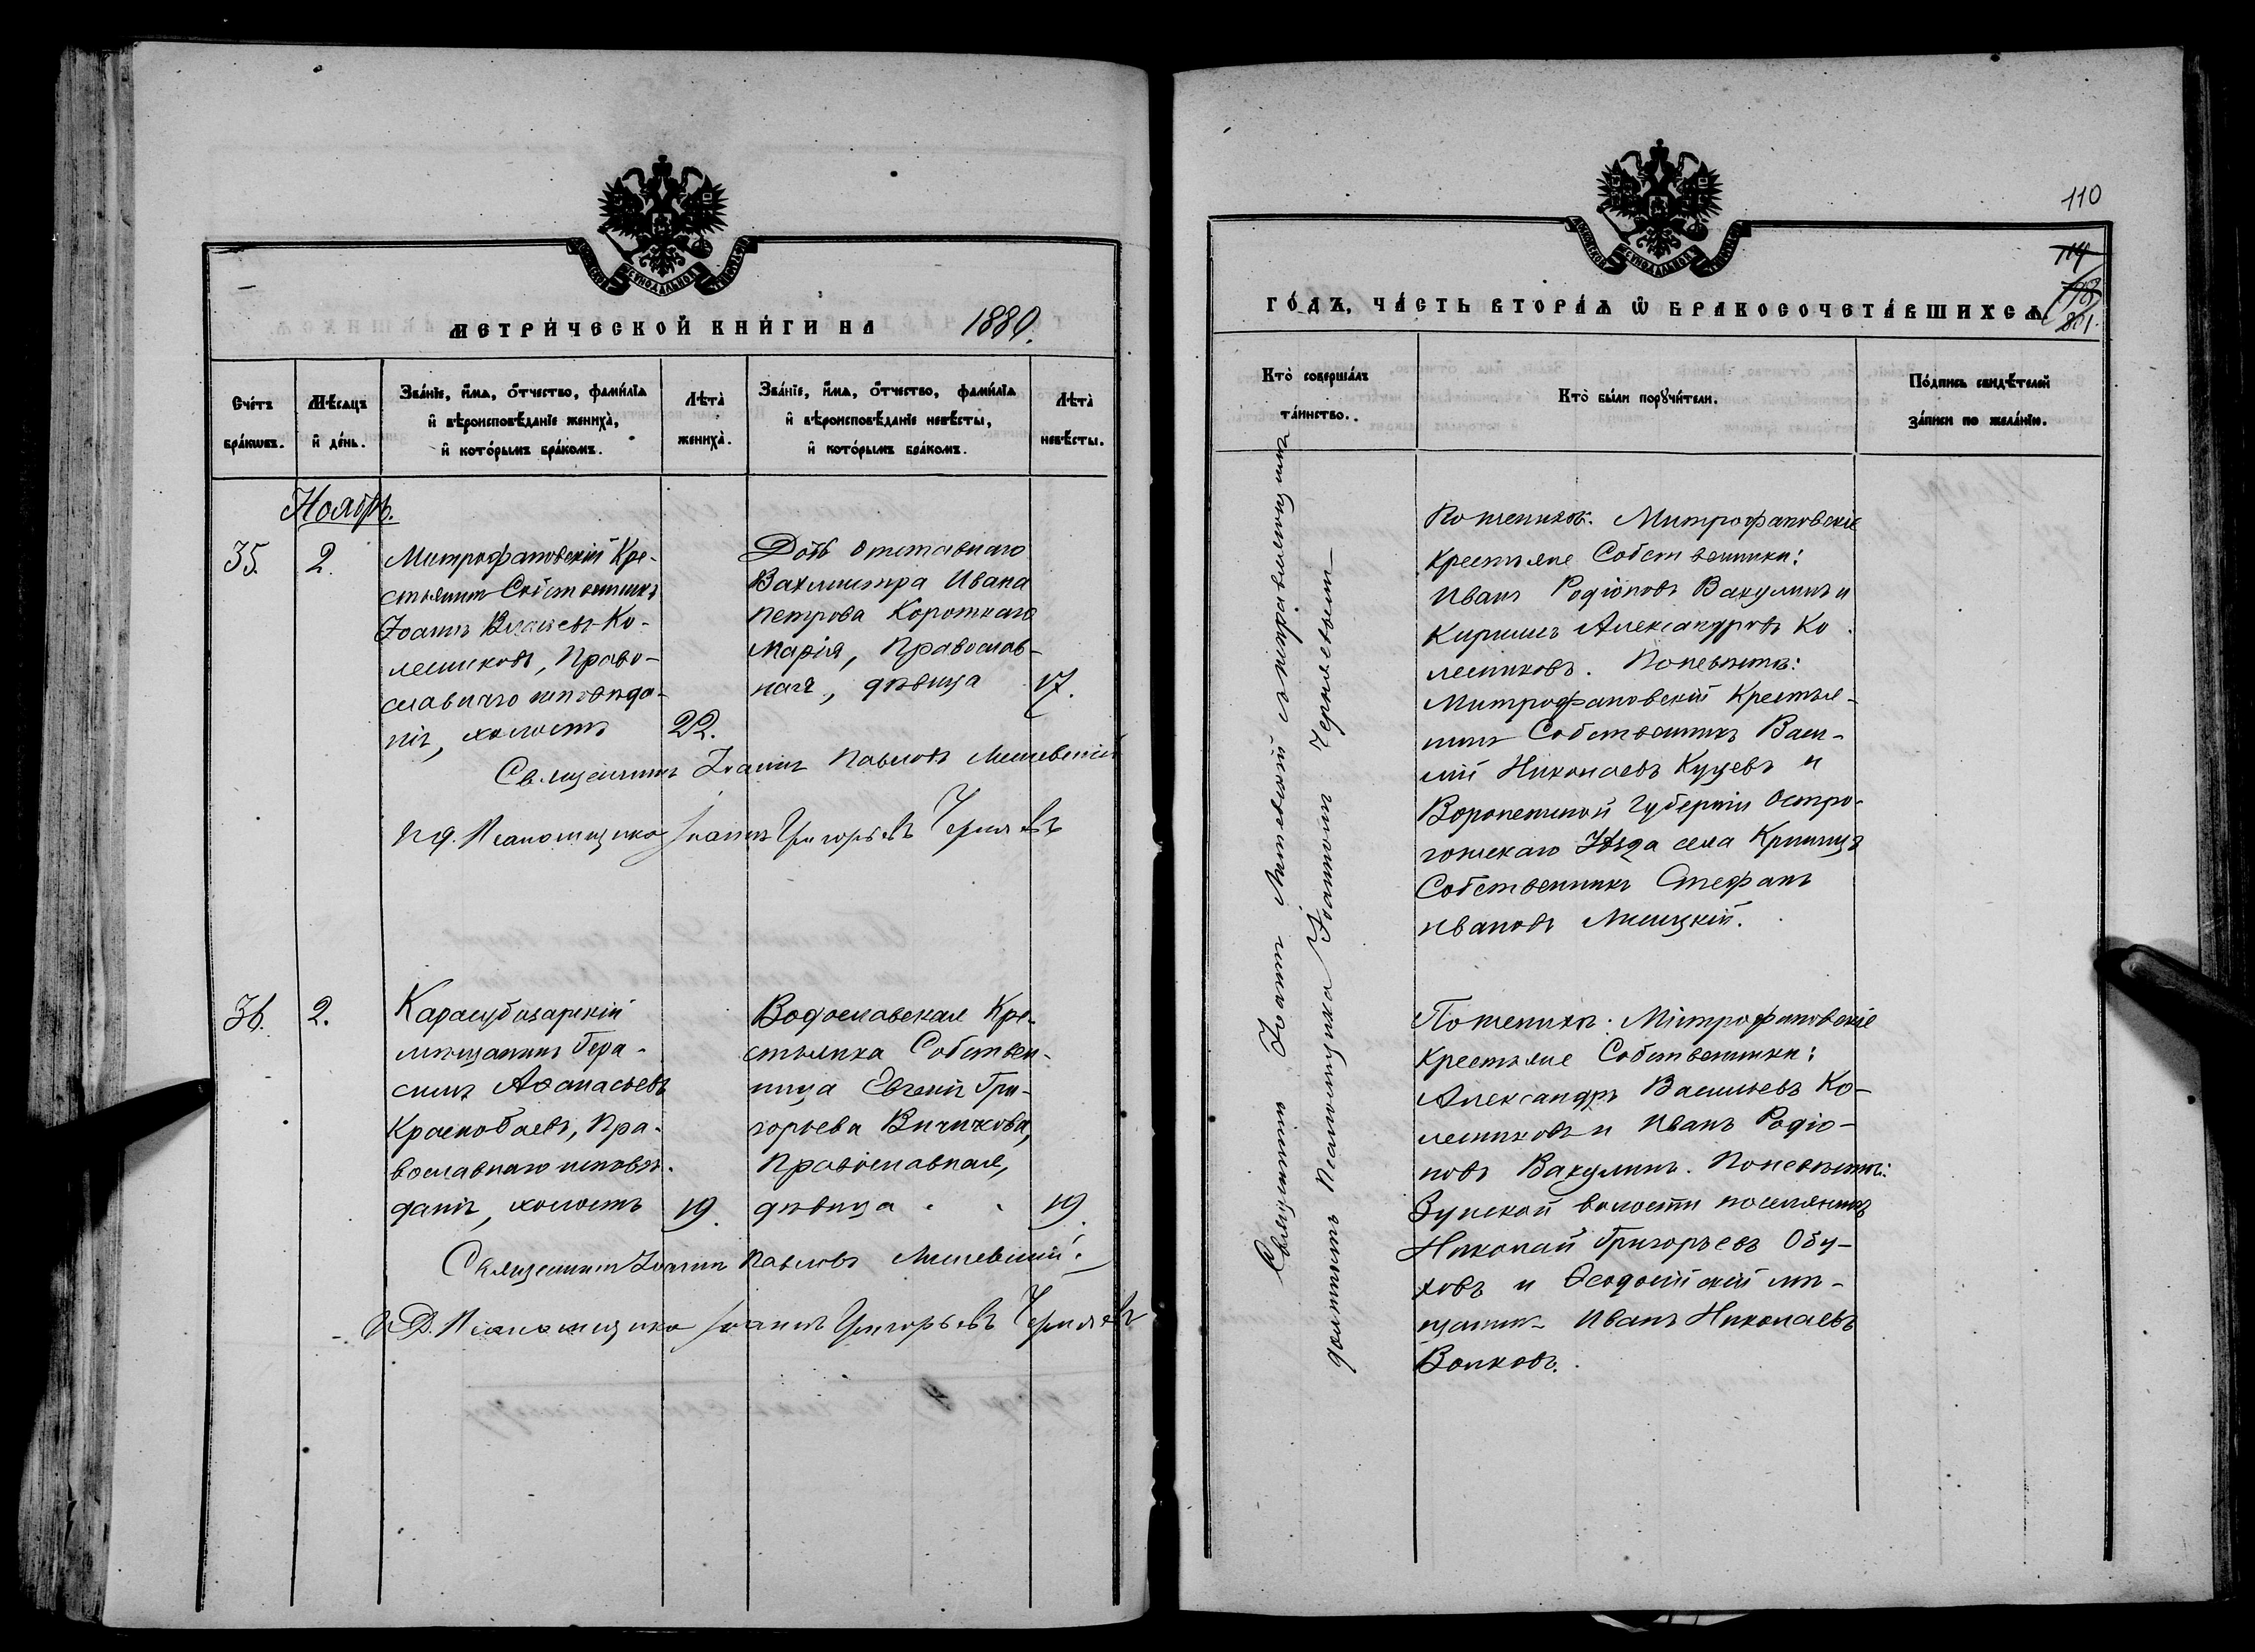 МЕТРИ́ЧЕСКОЙ КНИ́ГИ НА 1880.
Сче́тъ бра́ковъ.
Мѣ́сяцъ и де́нь.
Зва́нїе, и́мя, о́тчество, фами́лїа и вѣроисповѣ́данїе жениха̀, и кото́рымъ бра́комъ.
Лѣта̀ жениха̀.
Зва́нїе, и́мя, о́тчество, фами́лїа и вѣроисповѣ́данїе невѣ́сты, и кото́рымъ бра́комъ.
Лѣта̀ невѣ́сты.
Ноябрь.
35. 2.
Митрофановскій Кре-
стьянинъ Собственникъ
Іоаннъ Власьевъ Ко-
лесниковъ, Право-
славнаго исповѣда-
нія, холостъ 22.
Дочь отставнаго
Вахмистра Ивана
Петрова Короткаго
Марія, Православ-
ная, дѣвица 17.
Священникъ Іоаннъ Павловъ
И. д. Псаломщика Іоаннъ Григорьевъ Чернявъ
36. 2.
Карасубазарскій
мѣщанинъ Гера-
симъ Аѳанасьевъ
Краснобаевъ, Пра-
вославнаго исповѣ-
данія, холостъ 19.
Водославская Кре-
стьянка Собствен-
ница Евгенія Гри-
горьева Вичикова,
Православная,
дѣвица 19.
Священникъ Іоаннъ Павловъ
И. Д. Псаломщика Іоаннъ Григорьевъ Чернявъ
110
114
801.
ГО́ДЪ, ЧА́СТЬ ВТОРА́Я Ѿ БРАКОСОЧЕТА́ВШИХСЯ.
Кто̀ соверша́лъ та́инство.
Кто̀ бы́ли поручи́тели.
По́дпись свидѣ́телей за́писи по жела́нїю.
Священникъ Іоаннъ съ исправляющимъ
должность Псаломщика Іоанномъ Чернявымъ
По женихѣ: Митрофановскіе
Крестьяне Собственники:
Иванъ Родіоновъ Вакулинъ и
Кириллъ Александровъ Ко-
лесниковъ. По невѣстѣ:
Митрофановскій Крестья-
нинъ Собственникъ Васи-
лій Николаевъ Куцевъ и
Воронежской Губерніи Остро-
гожскаго Уѣзда села Криница
Собственникъ Стефанъ
Ивановъ Лисицкій.
По женихѣ: Митрофановскіе
Крестьяне Собственники:
Александръ Васильевъ Ко-
лесниковъ и Иванъ Родіо-
новъ Вакулинъ. По невѣстѣ:
Зуйской волости поселянинъ
Николай Григорьевъ Обу-
ховъ и Ѳеодосійскій мѣ-
щанинъ Иванъ Николаевъ
Волковъ.